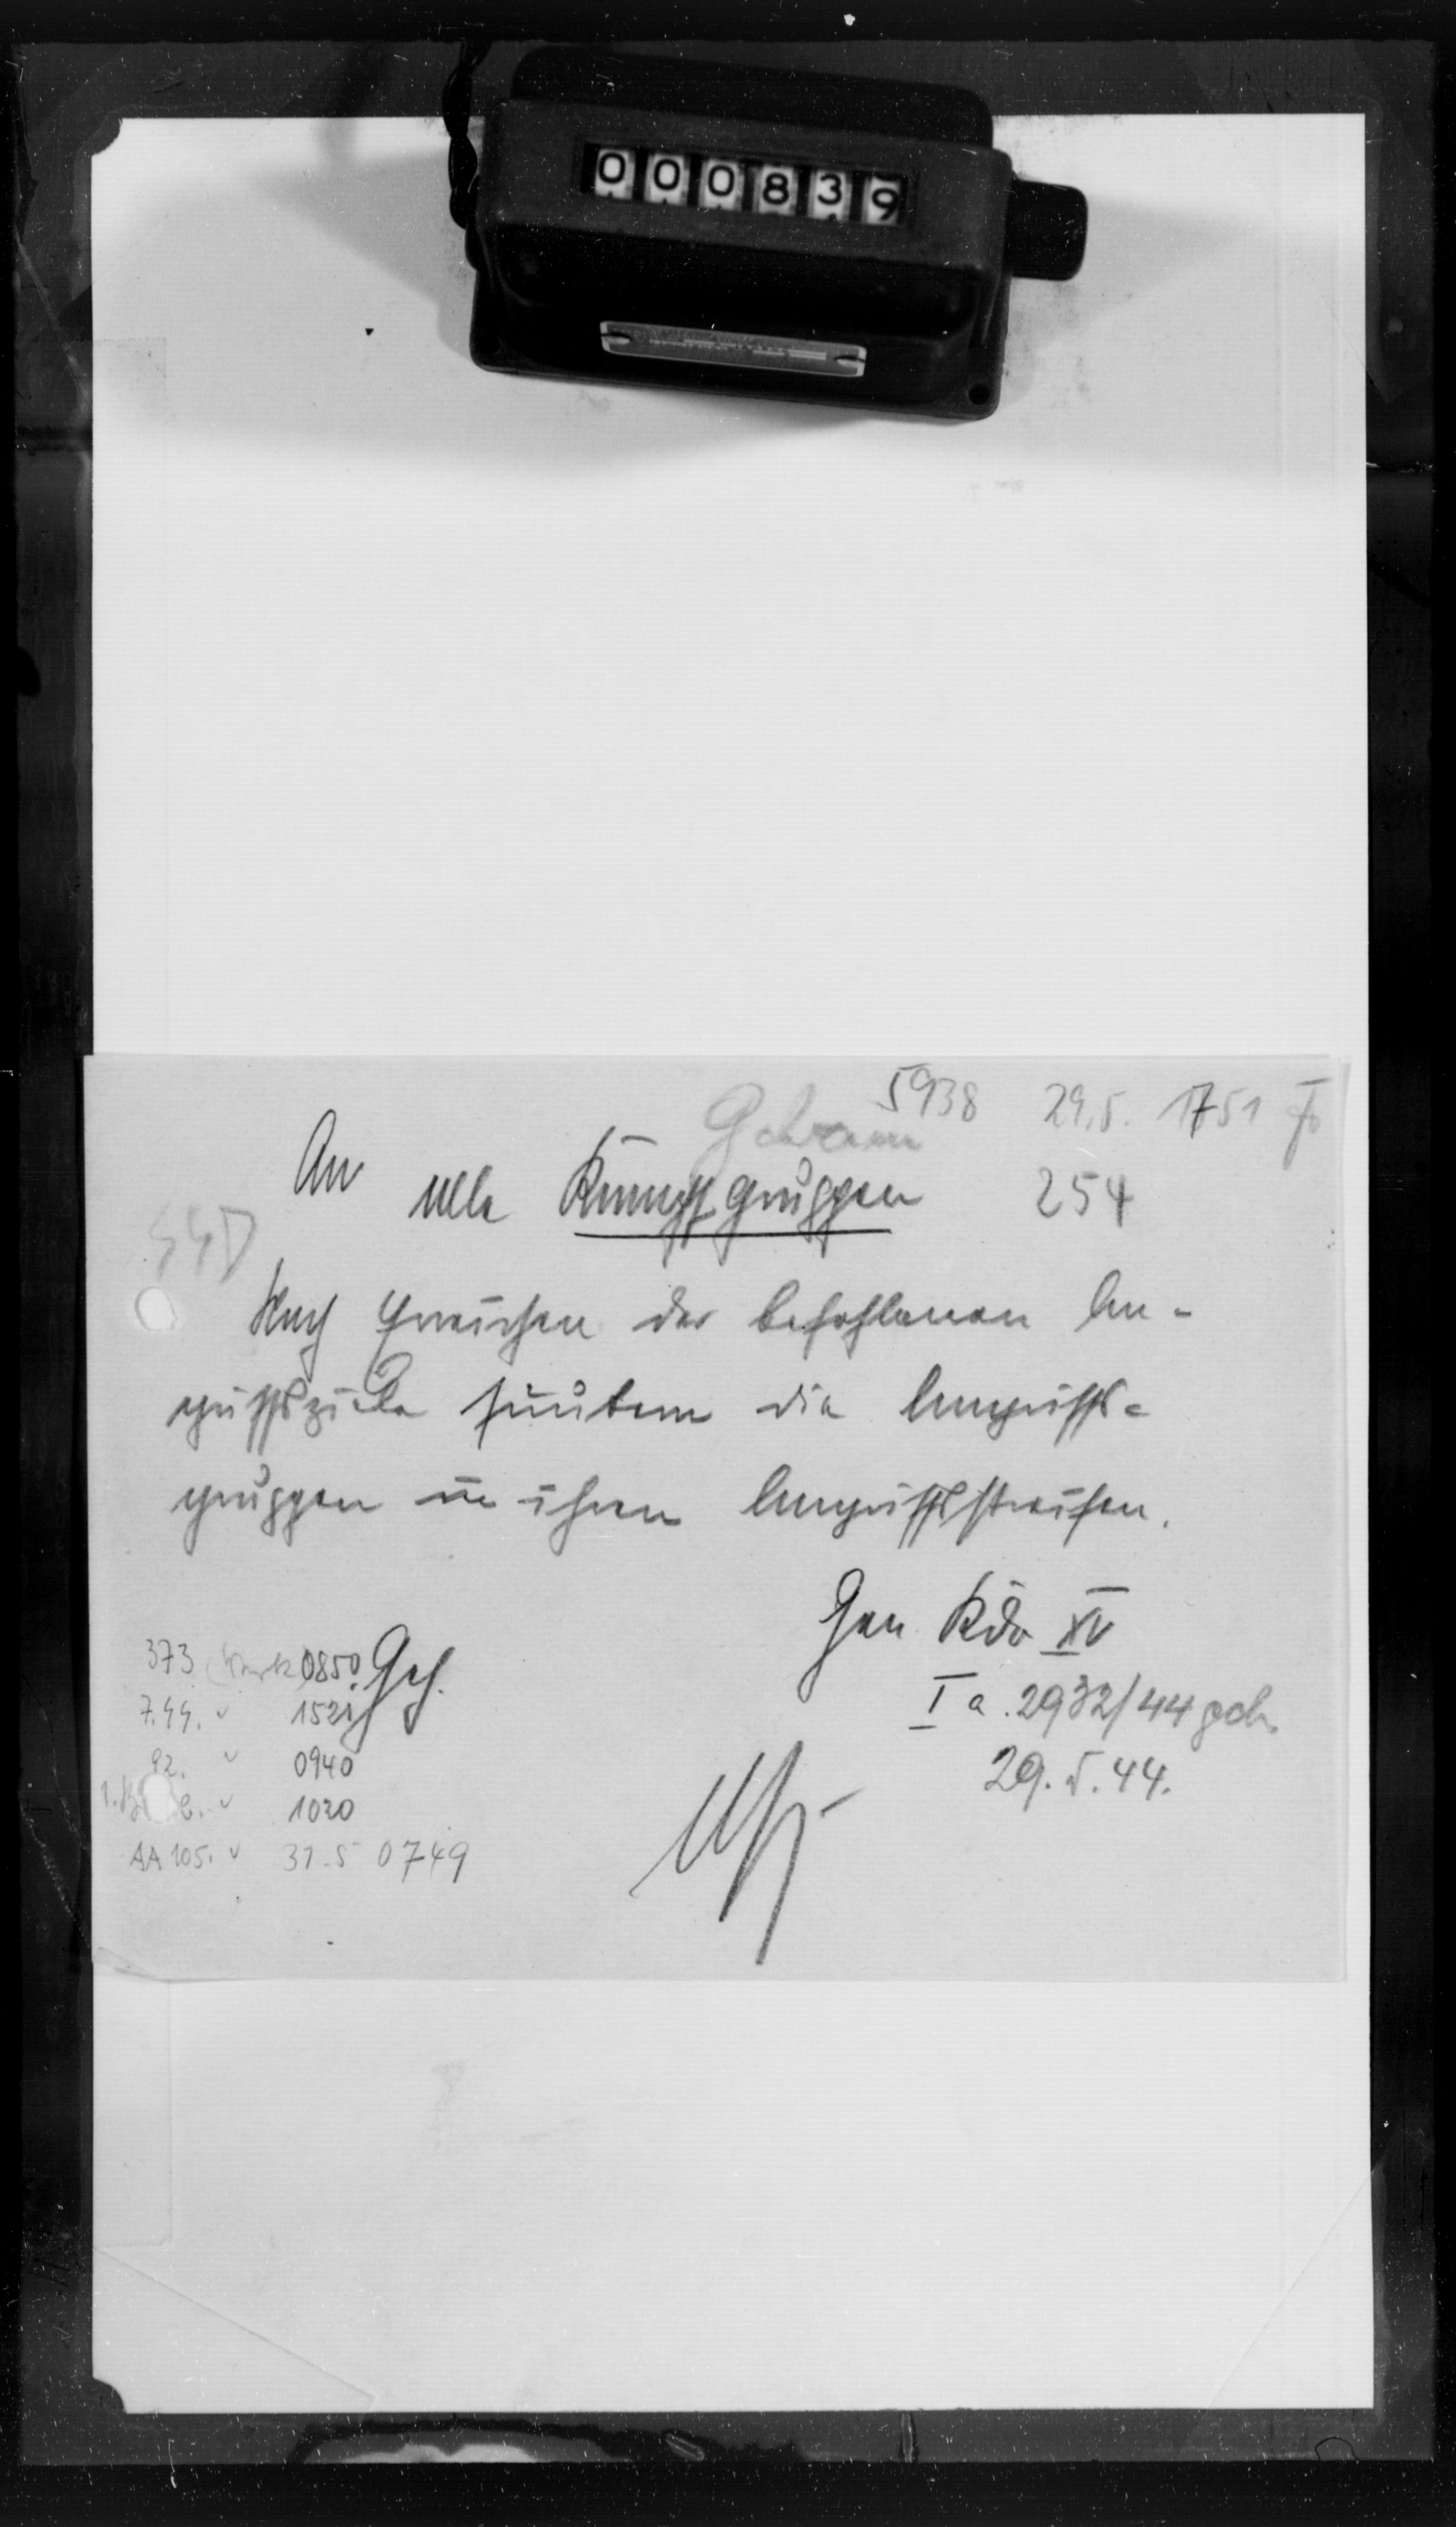 000839
5938 29.5. 1751
Geheim
An alle Kampfgruppen 254
SSD
Nach Erreichen der befohlenen An-
griffsziele säubern die Angriffs-
gruppen in ihren Angriffsstreifen.
Gen Kdo XV
Ia. 2932/44 geh.
29.5.44.
373 (Funk) 0850
7.SS. " 1521
92. " 0940
1. " 1020
AA 105. " 31.5 0749